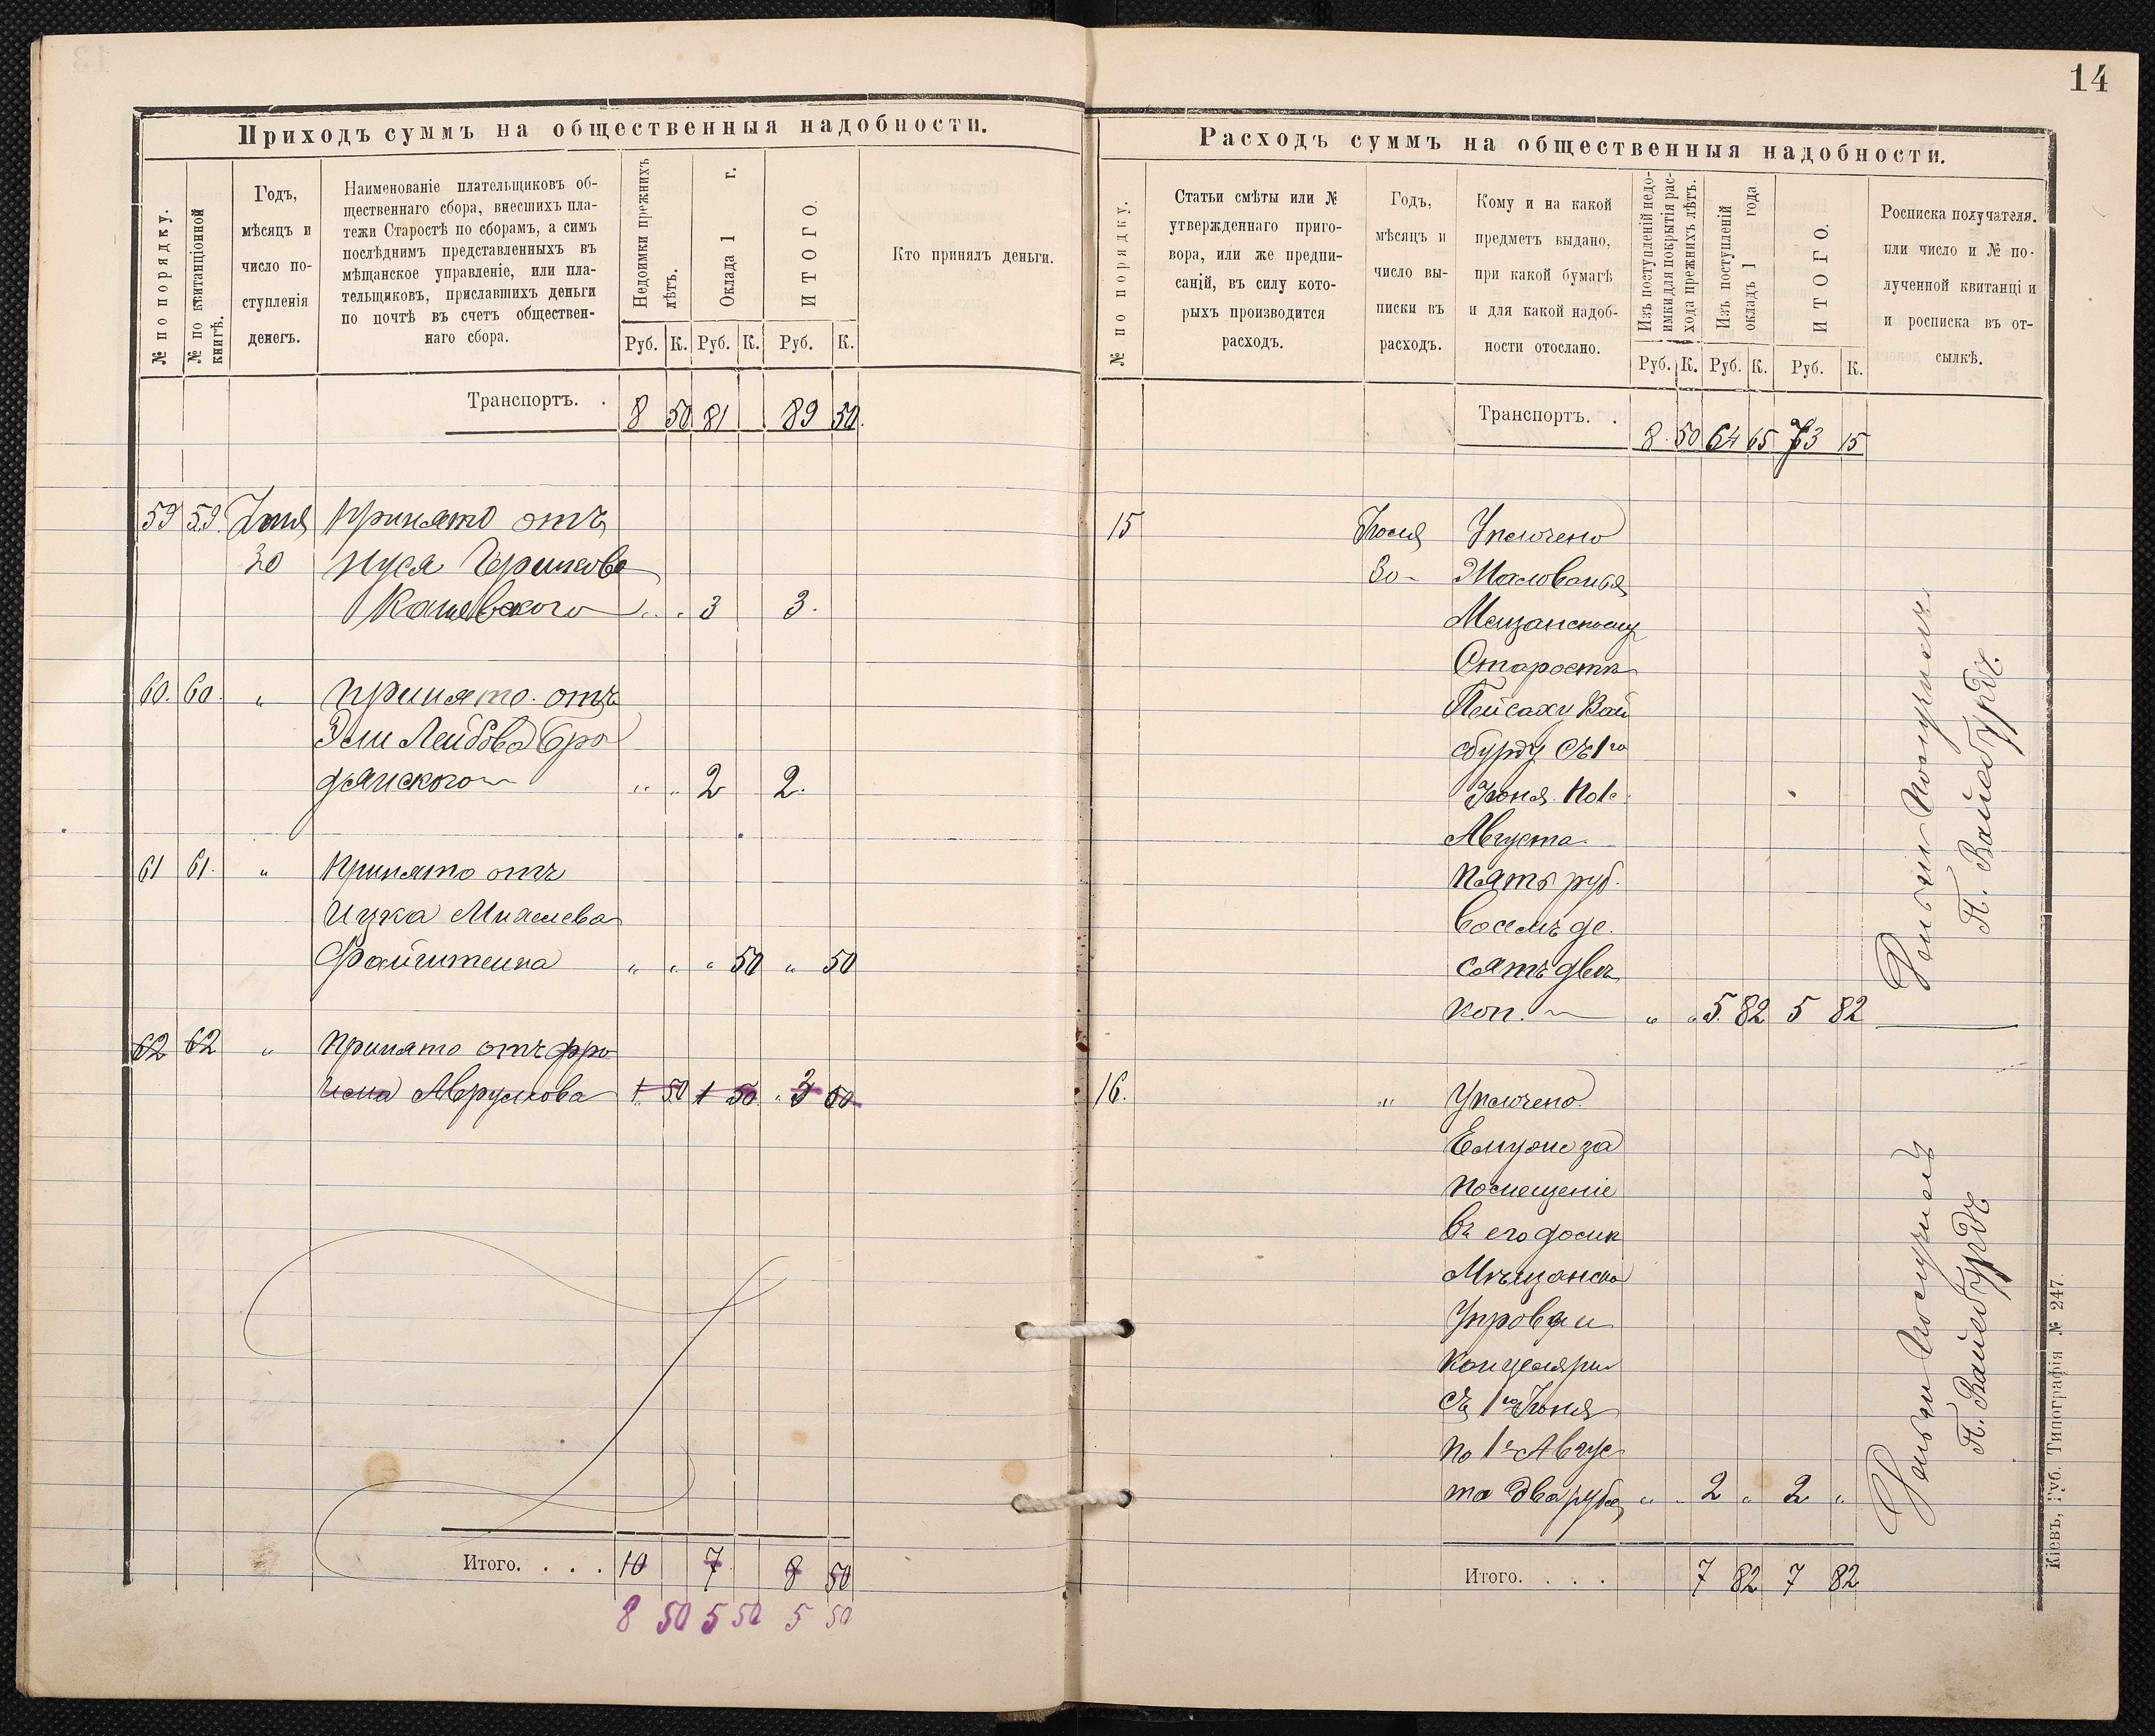 14
Приходъ суммъ на общественныя надобности.
№ по порядку.
№ по квитанціонной
книгѣ.
Годъ,
мѣсяцъ и
число по-
ступленія
денегъ.
Наименованіе плательщиковъ об-
щественнаго сбора, внесшихъ пла-
тежи Старостѣ по сборамъ, а симъ
послѣднимъ представленныхъ въ
мѣщанское управленіе, или пла-
тельщиковъ, приславшихъ деньги
по почтѣ въ счетъ обществен-
наго сбора.
Недоимки прежнихъ
лѣтъ.
Оклада 1 г.
ИТОГО.
Кто принялъ деньги.
Руб. К. Руб. К. Руб. К.
Транспортъ. . 8 50 81 89 50.
59 59. 30 Принято отъ
Каневского " " 3 3.
60. 60. " принято отъ
Эли Лейбова Бро
дянского " " 2 2.
61 61. " Принято отъ
Ицка
Файнштейна " " " 50 " 50
62 62 " Принято отъ Фро
има Аврумова 1 50 1 50 " 3 00
Итого. . . . 10 7 8 50
8 50 5 50 5 50
Расходъ суммъ на общественныя надобности.
№ по порядку.
Статьи смѣты или №
утвержденнаго приго-
вора, или же предпи-
саній, въ силу кото-
рыхъ производится
расходъ.
Годъ,
мѣсяцъ и
число вы-
писки въ
расходъ.
Кому и на какой
предметъ выдано,
при какой бумагѣ
и для какой надоб-
ности отослано.
Изъ поступленій недо-
имки для покрытія рас-
хода прежнихъ лѣтъ.
Изъ поступленій
окладъ 1 года
ИТОГО.
Росписка получателя.
или число и № по-
лученной квитанці и
и росписка въ от-
сылкѣ.
Руб. К. Руб. К. Руб. К.
Транспортъ. . 8. 50 64 65 73 15
15 Уплочено
30 - Жалованья
Мещанскому
Старосте
Пейсаху Вай
сбурду Съ 1го
по 1е
Августа
Пять руб.
Восемъ де.
сятъ две
коп. " " 5. 82 5 82
Деньги Получилъ
П. Вайсбурдъ
16. " Уплочено
Ему же за
Помещеніе
въ его доме
Мѣщанско
Управы и
Концеляріи
Съ 1го
по 1е Авгус
та два рубля " " 2 " 2 "
Деньги Получилъ
П. Вайсбурдъ
Итого. . . . 7 82 7 82
Кіевъ, Губ. Типографія № 247.